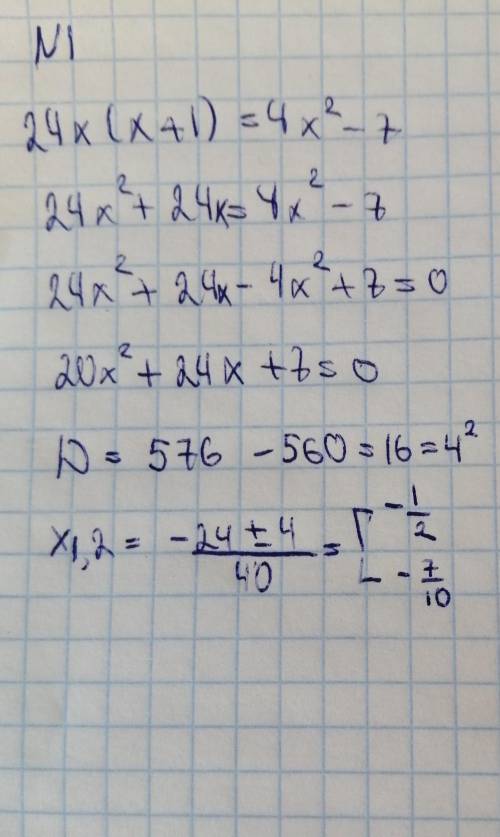 N1
24x(x+1) = 4x² - 7
24x² + 24x = 4x² - 7
24x² + 24x - 4x² + 7 = 0
20x² + 24x + 7 = 0
D = 576 - 560 = 16 = 4²
x1,2 = (-24 ± 4)/40 = [ -1/2
-7/10